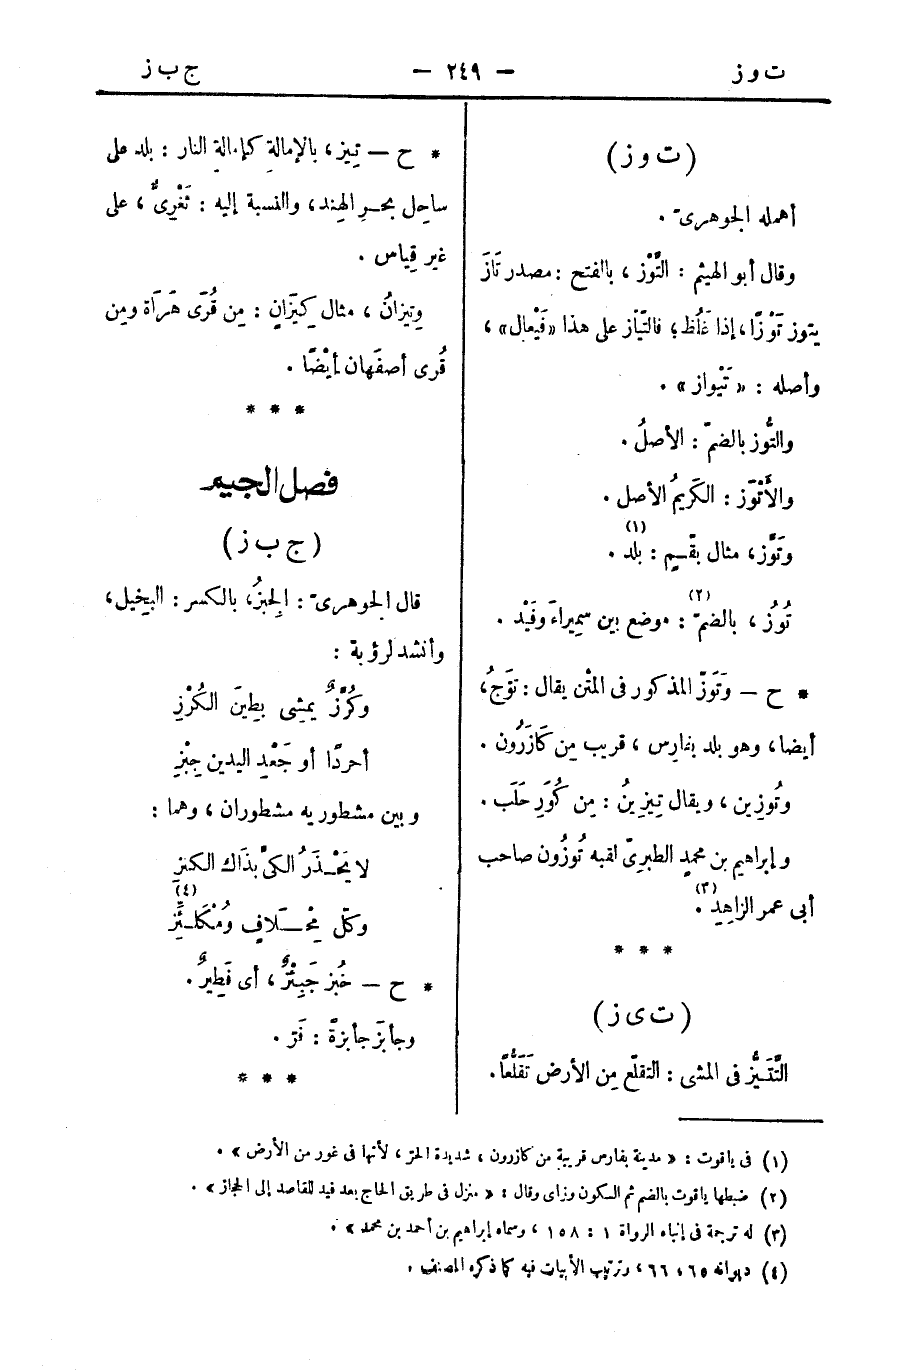 ت و ز — ٢٤٩ — ج ب ز
(ت و ز)
أهمله الجوهرىّ .
وقال أبو الهيثم : التَّوْز ، بالفتح : مصدر تَازَ
يتوز تَوْزًا، إذا غَلُظ؛ فالتّيّاز على هذا «فَيْعال» ،
وأصله : « تَيْواز» .
والتُّوز بالضمّ : الأصلُ .
والأَتْوَز : الكَرِيمُ الأصل .
وتَوَّز، مثال بقّم : بلد (١) .
تُوُز ، بالضمّ (٢) : موضع بين سميراءَ وفَيْد .
* ح — وتَوَزّ المذكور فى المتْن يقال : تَوَّجُ،
أيضا، وهو بلد بفارِس ، قريب مِن كَازَرُون .
وتُوزِين ، ويقال تِيزِينُ : مِن كُوَرِ حلَب .
وإبراهيم بن محمدٍ الطبرِىّ لقبه تُوزُون صاحب
أبى عمر الزاهِدِ (٣) .
* * *
(ت ى ز)
التَّتَيُّز فى المشى : التقلّع مِن الأرض تَقَلُّعاً .
* ح — تيز ، بالإمالةِ كإمالةِ النار : بلد على
ساحِل بحرِ الهِند، والنسبة إليه : تَغْرِىٌّ ، على
غير قِياس .
وتِيزانُ ، مثال كِيزَانٍ : مِن قُرَى هَرَاة ومِن
قُرى أصفَهان أَيْضًا .
* * *
فصل الجيم
(ج ب ز)
قال الجوهرىّ : الجِبْزُ، بالكسر : البخِيل،
وأنشد لرؤبة :
وكُرَّزٌ يمشِى بطِينَ الكُرْزِ
أحردًا أو جَعْدِ اليدين جِبْزِ
وبين مشطوريه مشطوران ، وهما :
لا يَحْذَرُ الكىَّ بذَاك الكنز
وكلّ مِخْلافٍ ومُكْلَئِزِّ (٤)
* ح — خُبز جَبِيزٌ ، أى فَطِيرٌ .
وجأبَز جأبزةً : فَرّ .
* * *
(١) فى ياقوت : « مدينة بفارس قريبة من كازرون ، شديدة الحرّ ، لأنها فى غور من الأرض » .
(٢) ضبطها ياقوت بالضم ثم السكون وزاى وقال : « منزل فى طريق الحاج بعد فيد للقاصد إلى الحجاز » .
(٣) له ترجمة فى إنباه الرواة ١ : ١٥٨ ، وسماه إبراهيم بن أحمد بن محمد » .
(٤) ديوانه ٦٥ ، ٦٦ ، وترتيب الأبيات فيه كما ذكره المصنف .